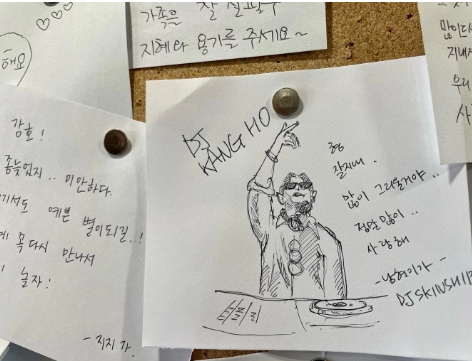 가족들 잘 살펴주
지혜와 용기를 주세요~
해요
지내
우리
사
강호!
좀 늦었지.. 미안하다.
서도 예쁜 별이되길..!
꼭 다시 만나서
놀자!
- 지지가.
DJ
KANG HO
형
잘지내.
많이 그리울거야..
정말많이..
사랑해
-남현이가-
DJ SKINSHIP